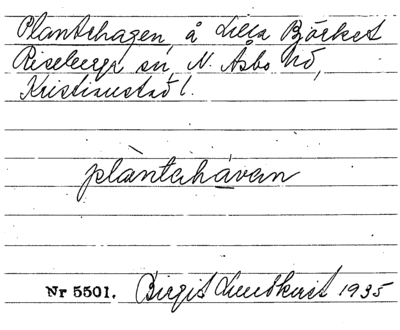 Plantehagen, å Lilla Björket
Riseberga sn, N. Åsbo hd,
Kristianstad l.
plàntəhávan
Nr 5501. Birgit Lundkvist 1935